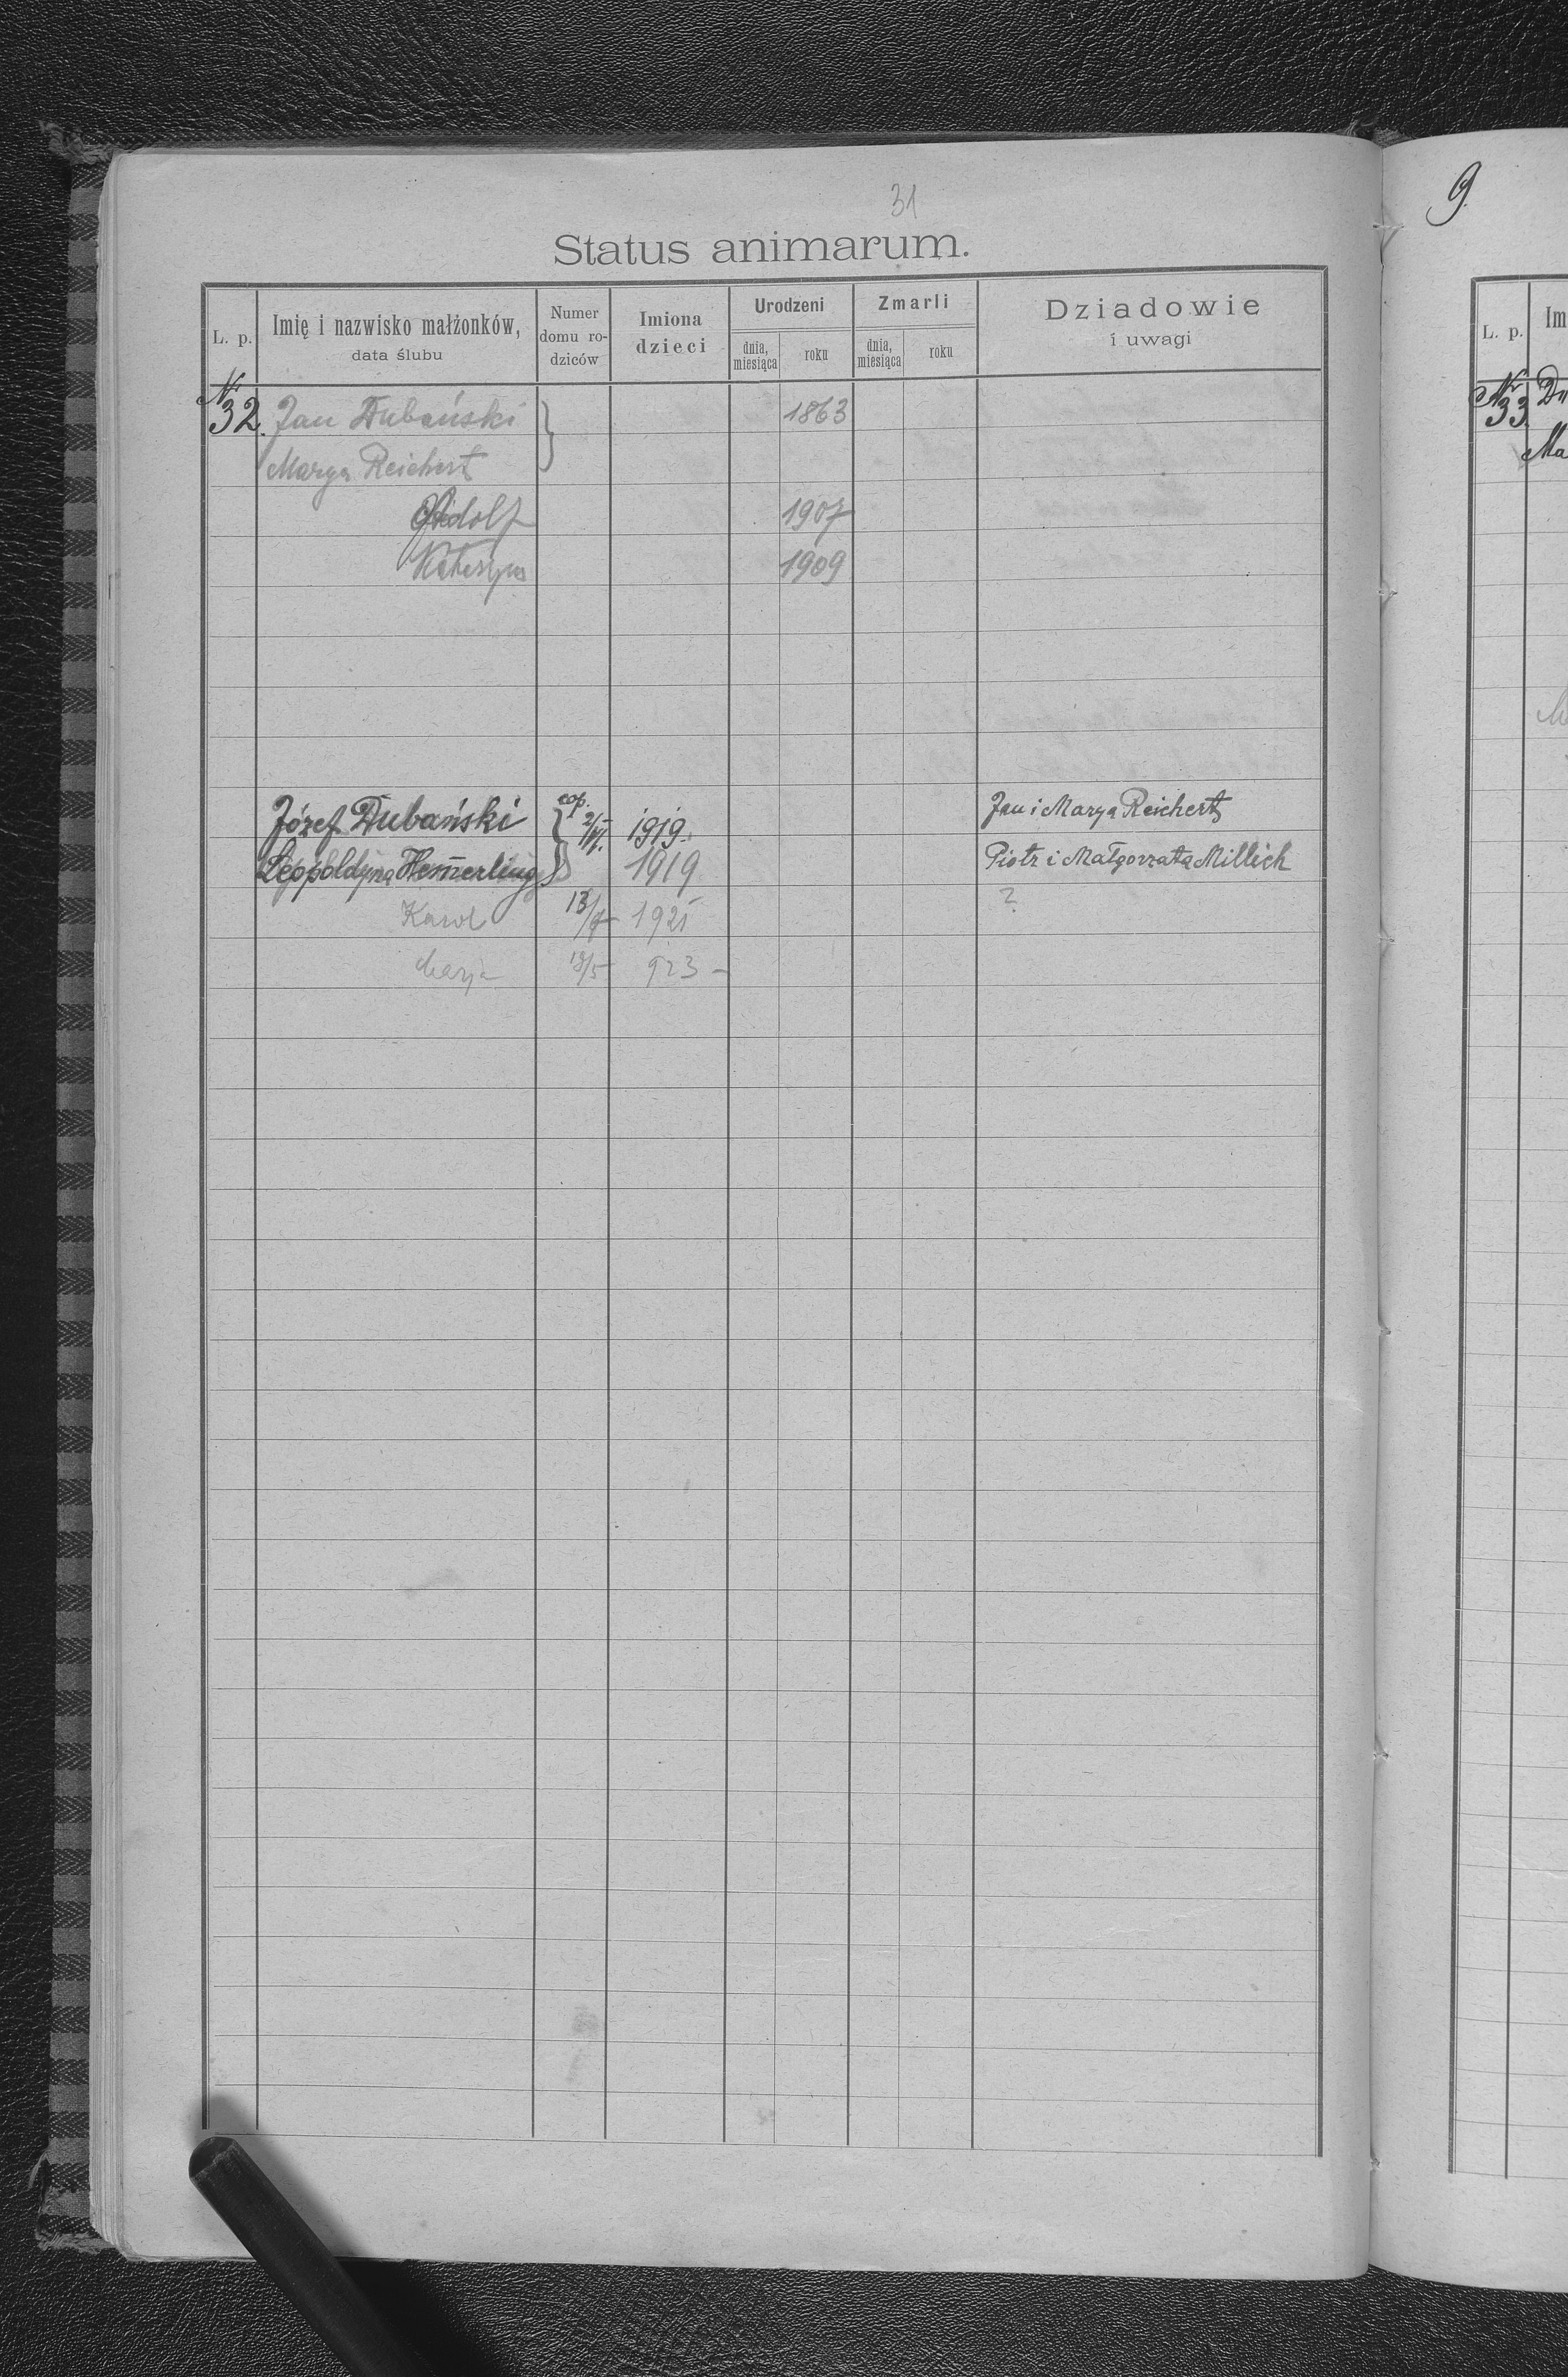 31
Status animarum.
L. p. Imię i nazwisko małżonków, data ślubu Numer domu rodziców Imiona dzieci Urodzeni dnia, miesiąca roku Zmarli dnia, miesiąca roku Dziadowie i uwagi
Nr 32. Jan Dubański } 1863
Marya Reichert
Adolf 1907
Katarzyna 1909
Józef Dubański { cop. 2/VII. 1919. Jan i Marya Reichert
Leopoldyna Hem̄erling } 1919 Piotr i Małgorzata Millich
Karol 13/7 1921 ?
Marja 18/5 923 -
9.
L. p. Im
Nr 33. Du
Ma